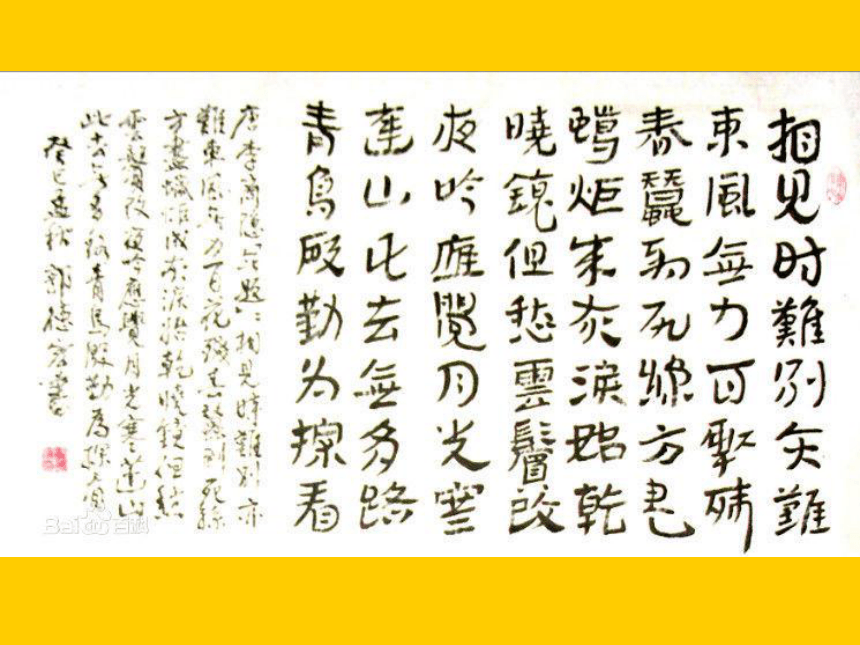 相见时難別亦難
東風無力百花殘
春蠶到死絲方尽
蠟炬成灰淚始乾
曉鏡但愁雲鬢改
夜吟應覺月光寒
蓬山此去無多路
青鳥殷勤为探看
唐李商隱「无題」：相見時難別亦
難東風无力百花殘春蠶到死絲
方盡蠟炬成灰淚始乾曉鏡但愁
雲鬢改夜吟應覺月光寒蓬山
此去无多路青鳥殷勤為探看
癸巳 郭德 書
Bai百科